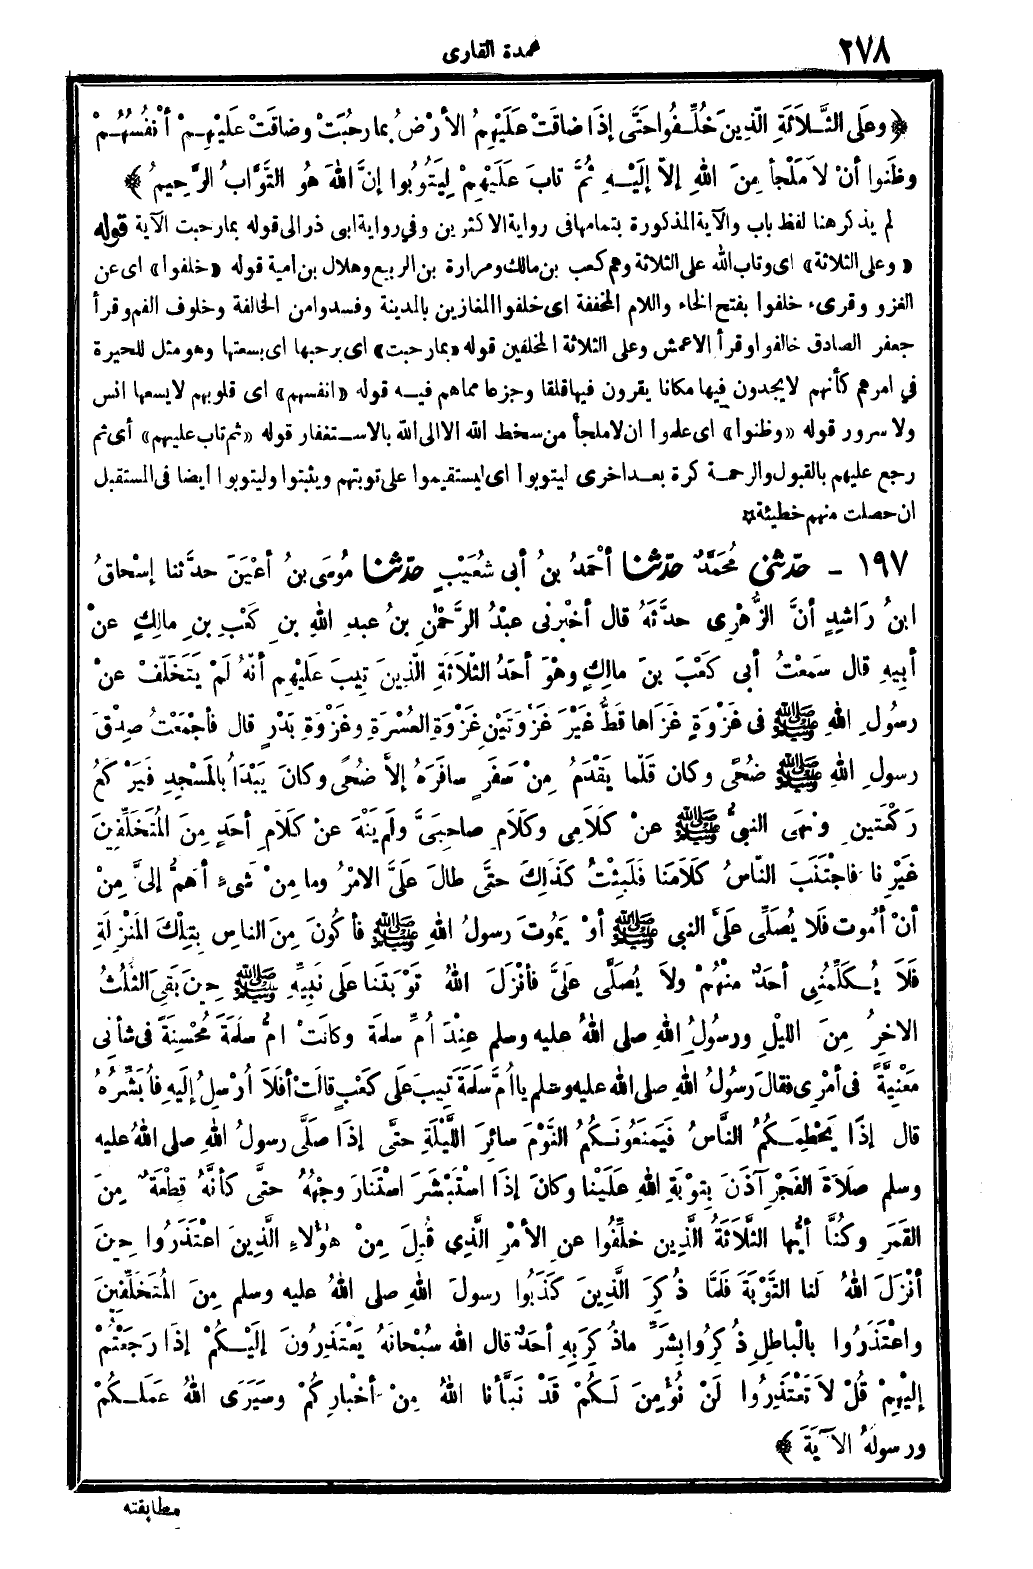 ٢٧٨
عمدة القارى
﴿ وعَلَى الثَّلاَثَةِ الَّذِينَ خُلِّفُوا حَتَّى إِذَا ضاقَتْ عَلَيْهِمُ الأَرْضُ بِمارحُبَتْ وضاقَتْ عَلَيْهِمْ أنْفُسُهُمْ
وظَنوا أنْ لاَ مَلْجأ مِنَ اللهِ إلاّ إلَيْهِ ثُمَّ تابَ عَلَيْهِمْ لِيَتُوبُوا إنَّ اللهَ هُوَ التَّوَّابُ الرَّحِيمُ ﴾
لم يذكر هنا لفظ باب والآية المذكورة بتمامها فى رواية الاكثرين وفي رواية ابى ذر الى قوله بمارحبت الآية قوله
« وعلى الثلاثة» اى وتاب الله على الثلاثة وهم كعب بن مالك ومرارة بن الربيع وهلال بن امية قوله «خلفوا» اى عن
الغزو وقرىء خلفوا بفتح الخاء واللام المخففة اى خلفوا المغازين بالمدينة وفسدوا من الخالفة وخلوف الفم وقرأ
جعفر الصادق خالفوا وقرأ الاعمش وعلى الثلاثة المخلفين قوله «بمارحبت» اى برحبها اى بسعتها وهو مثل للحيرة
في امرهم كأنهم لايجدون فيها مكانا يقرون فيها قلقا وجزعا مماهم فيه قوله «انفسهم» اى قلوبهم لايسعها انس
ولا سرور قوله «وظنوا» اى علموا ان لاملجأ من سخط الله الا الى الله بالاستغفار قوله «ثم تاب عليهم» أى ثم
رجع عليهم بالقبول والرحمة كرة بعد اخرى ليتوبوا اى ليستقيموا على توبتهم ويثبتوا وليتوبوا ايضا فى المستقبل
ان حصلت منهم خطيئة
١٩٧ - حَدَّثَنِى مُحَمَّدٌ حَدَّثنا أحْمَدُ بنُ أبى شُعَيْبٍ حَدَّثنا مُوسَى بنُ أعْيَنَ حدَّثنا إسْحاقُ
ابنُ رَاشِدٍ أنَّ الزُّهْرِى حدَّثَهُ قال أخْبرنى عبْدُ الرَّحْمٰنِ بنُ عبدِ اللهِ بنِ كَعْبِ بنِ مالِكٍ عنْ
أبِيهِ قال سَمعْتُ أبى كَعْبَ بنَ مالِكٍ وهْوَ أحَدُ الثَّلاَثَةِ الَّذِينَ تِيبَ عَلَيْهِم أنَّهُ لَمْ يَتَخَلَّفْ عنْ
رسُولِ اللهِ ﷺ فى غَزْوَةٍ غَزَاها قَطُّ غَيْرَ غَزْوَتَيْنِ غَزْوَةِ العُسْرَةِ وغَزْوَةِ بَدْرٍ قال فأجْمَعْتُ صِدْقَ
رسولِ اللهِ ﷺ ضُحًى وكان قَلَّما يَقْدَمُ مِنْ سَفَرٍ سافَرَهُ إلاَّ ضُحًى وكانَ يَبْدَأُ بالمَسْجِدِ فَيَرْكَعُ
رَكْعَتَينِ ونَهَى النبيُّ ﷺ عنْ كَلاَمِى وكَلاَمِ صاحِبَىَّ ولَم يَنْهَ عنْ كَلاَمِ أحَدٍ مِنَ المُتَخَلِّفِينَ
غَيْرِنا فاجْتَنَبَ النَّاسُ كَلاَمَنا فَلَبِثْتُ كَذَلِكَ حتَّى طالَ عَلَىَّ الامْرُ وما مِنْ شَىْءٍ أهَمُّ إلىَّ مِنْ
أنْ أمُوت فَلا يُصَلِّى عَلَىَّ النبى ﷺ أوْ يَمُوتَ رسولُ اللهِ ﷺ فأكُونَ مِنَ الناسِ بِتِلْكَ المَنْزِلَةِ
فَلاَ يُكَلِّمُنِى أحَدٌ منْهُمْ ولاَ يُصَلَّى عَلَىَّ فأنْزَلَ اللهُ تَوْبَتَنا عَلَى نَبِيِّهِ ﷺ حِينَ بَقِىَ الثُّلُثُ
الاخِرُ مِنَ اللَّيْلِ ورسُولُ اللهِ صلى اللهُ عليه وسلم عِنْدَ أُمِّ سلمَةَ وكانَتْ امُّ سلَمَةَ مُحْسِنَةً فى شأنِى
مَعْنِيَّةً فى أمْرِى فقالَ رسُولُ اللهِ صلى الله عليه وسلم يا أُمَّ سَلَمَةَ تِيبَ عَلَى كَعْبٍ قالَتْ أفَلاَ أُرْسِلُ إلَيهِ فأُبَشِّرُهُ
قال إذًا يَحْطِمَكُمُ النَّاسُ فَيَمنَعُونَكُمُ النَّوْمَ سائِرَ اللَّيْلَةِ حتَّى إذَا صَلَّى رسولُ اللهِ صلى اللهُ عليه
وسلم صَلاَةَ الفَجْرِ آذَنَ بِتوبَةِ اللهِ عَلَيْنا وكانَ إذَا اسْتَبْشَرَ اسْتَنارَ وجْهُهُ حتَّى كأنَّهُ قِطْعَةٌ مِنَ
القَمَرِ وكُنَّا أيُّها الثَّلاَثَةُ الَّذِينَ خلِّفُوا عنِ الأمْرِ الَّذِي قُبِلَ مِنْ هٰؤُلاَءِ الَّذِينَ اعْتَذَرُوا حِينَ
أنْزَلَ اللهُ لَنا التَّوْبَةَ فَلَمَّا ذُكِرَ الَّذِينَ كَذَبُوا رسولَ اللهِ صلى اللهُ عليه وسلم مِنَ المُتَخَلِّفِينَ
واعْتَذَرُوا بالْباطِلِ ذُكِرُوا بِشَرِّ ماذُكِرَ بِهِ أحَدٌ قال الله سُبْحانَهُ يَعْتَذِرُونَ إلَيْكُمْ إذَا رَجَعْتُمْ
إلَيْهِمْ قُلْ لاَ تَعْتَذِرُوا لَنْ نُؤْمِنَ لَكُمْ قَدْ نَبَّأنا اللهُ مِنْ أخْبارِكُمْ وسَيَرَى اللهُ عَمَلَكُمْ
ورسولُهُ الآيَةَ ﴾
مطابقته